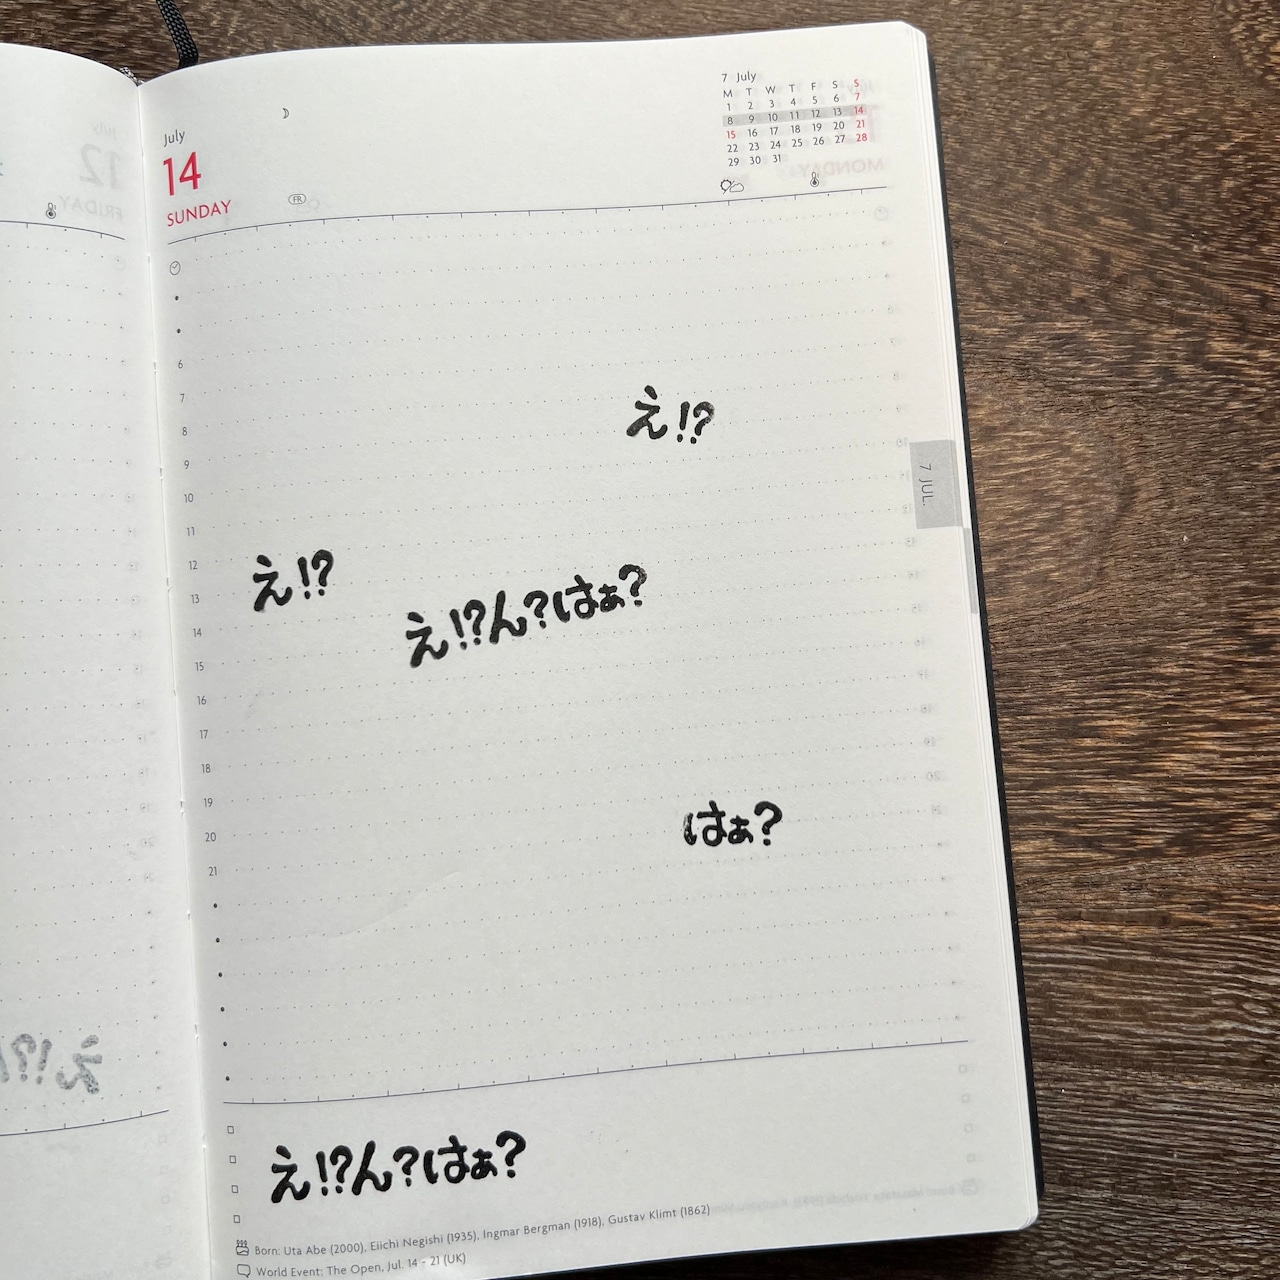 July
14
SUNDAY
FR
7 July
M T W T F S S
1 2 3 4 5 6 7
8 9 10 11 12 13 14
15 16 17 18 19 20 21
22 23 24 25 26 27 28
29 30 31
6
7
8
9
10
11
12
13
14
15
16
17
18
19
20
21
え!?
え!?
え!?ん?はぁ?
はぁ?
え!?ん?はぁ?
7 JUL.
Born: Uta Abe (2000), Eiichi Negishi (1935), Ingmar Bergman (1918), Gustav Klimt (1862)
World Event: The Open, Jul. 14 - 21 (UK)
July
12
FRIDAY
MONDAY
え!?